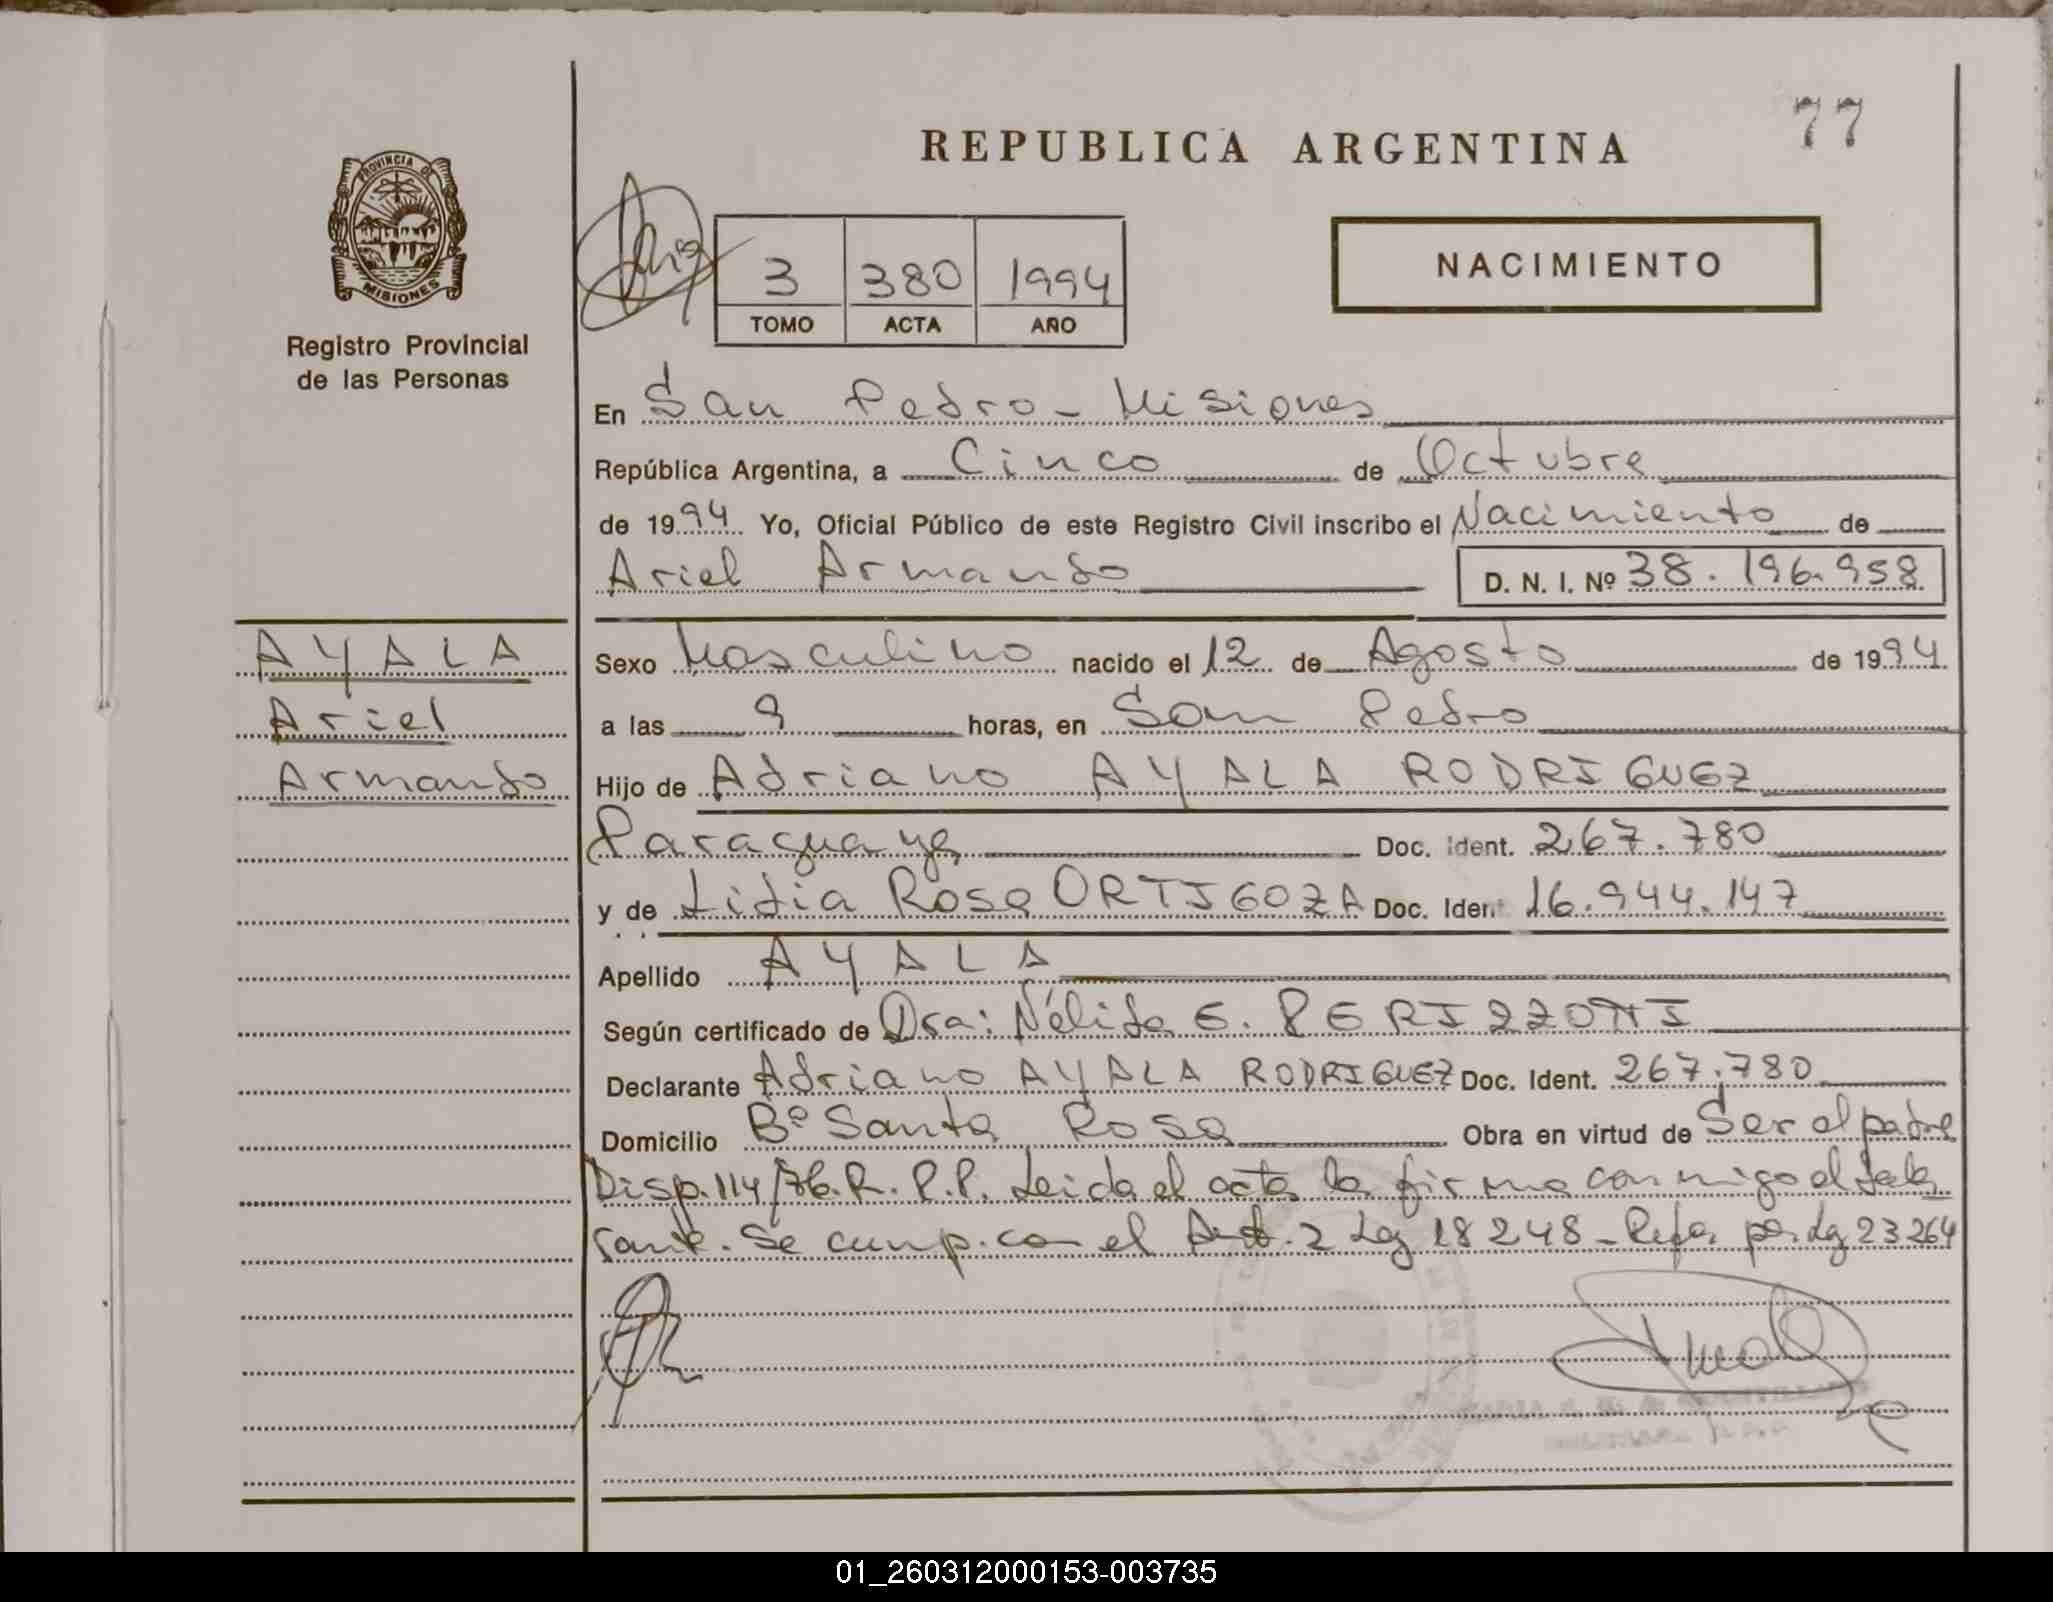 77
REPUBLICA ARGENTINA
PROVINCIA DE
MISIONES
Registro Provincial
de las Personas
3 380 1994
TOMO ACTA AÑO
NACIMIENTO
En San Pedro - Misiones
República Argentina, a Cinco de Octubre
de 1994 Yo, Oficial Público de este Registro Civil inscribo el Nacimiento de
Ariel Armando D. N. I. Nº 38.196.958
AYALA
Ariel
Armando
Sexo Masculino nacido el 12 de Agosto de 1994
a las 9 horas, en San Pedro
Hijo de Adriano AYALA RODRIGUEZ
Paraguaya Doc. Ident. 267.780
y de Lidia Rosa ORTIGOZA Doc. Ident 16.944.147
Apellido AYALA
Según certificado de Dra: Nélida E. PERIZZOTTI
Declarante Adriano AYALA RODRIGUEZ Doc. Ident. 267.780
Domicilio Bº Santa Rosa Obra en virtud de Ser el padre
Disp. 114/76. R. P. P. Leida el acta la firma conmigo el decla
rante. Se cump. con el Art. 2 Ley 18248 - por Ley 23264
01_260312000153-003735